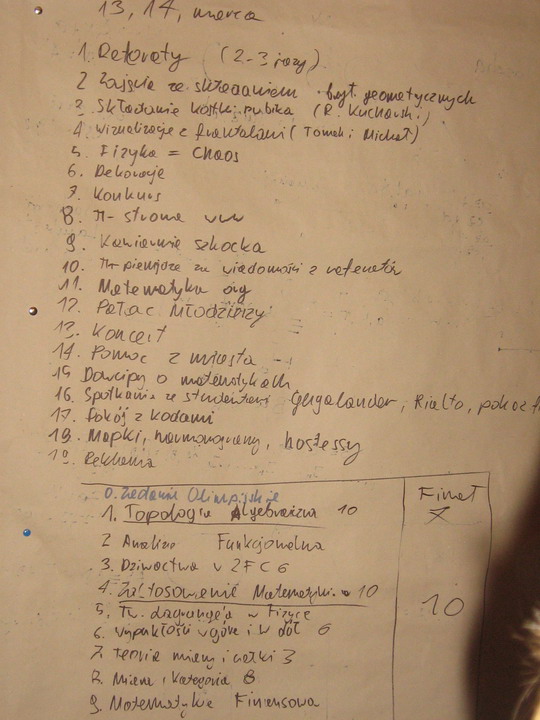 13, 14, marca
1. Referaty (2-3 razy)
2 Zajęcia ze składaniem brył geometrycznych
3. Składanie kostki rubika (R. Kucharski)
4. Wizualizacje z fraktalami (Tomek i Michał)
5. Fizyka = Chaos
6. Dekoracje
7. Konkurs
8. π- strona www
9. Kawiarnia szkocka
10. π- pieniądze za wiadomości z referatów
11. Matematyka org
12. Pałac Młodzieży
13. Koncert
14. Pomoc z miasta -
15 Dowcipy o matematykach
16. Spotkania ze studentami Rialto,
17. Pokój z kodami
18. Mapki, harmonogramy, hostessy
19. Reklama
0. Zadania Olimpijskie
Finał
1. Topologia Algebraiczna 10
2 Analiza Funkcjonalna
3. Dziwactwa w ZFC 6
4. Zastosowanie Matematyki 10
10
5. Tw. Lagrange'a w Fizyce
6. Wypukłości w górę i w dół 6
7. Teoria miary i całki 3
8. Miara i kategoria 8
9. Matematyka Finansowa